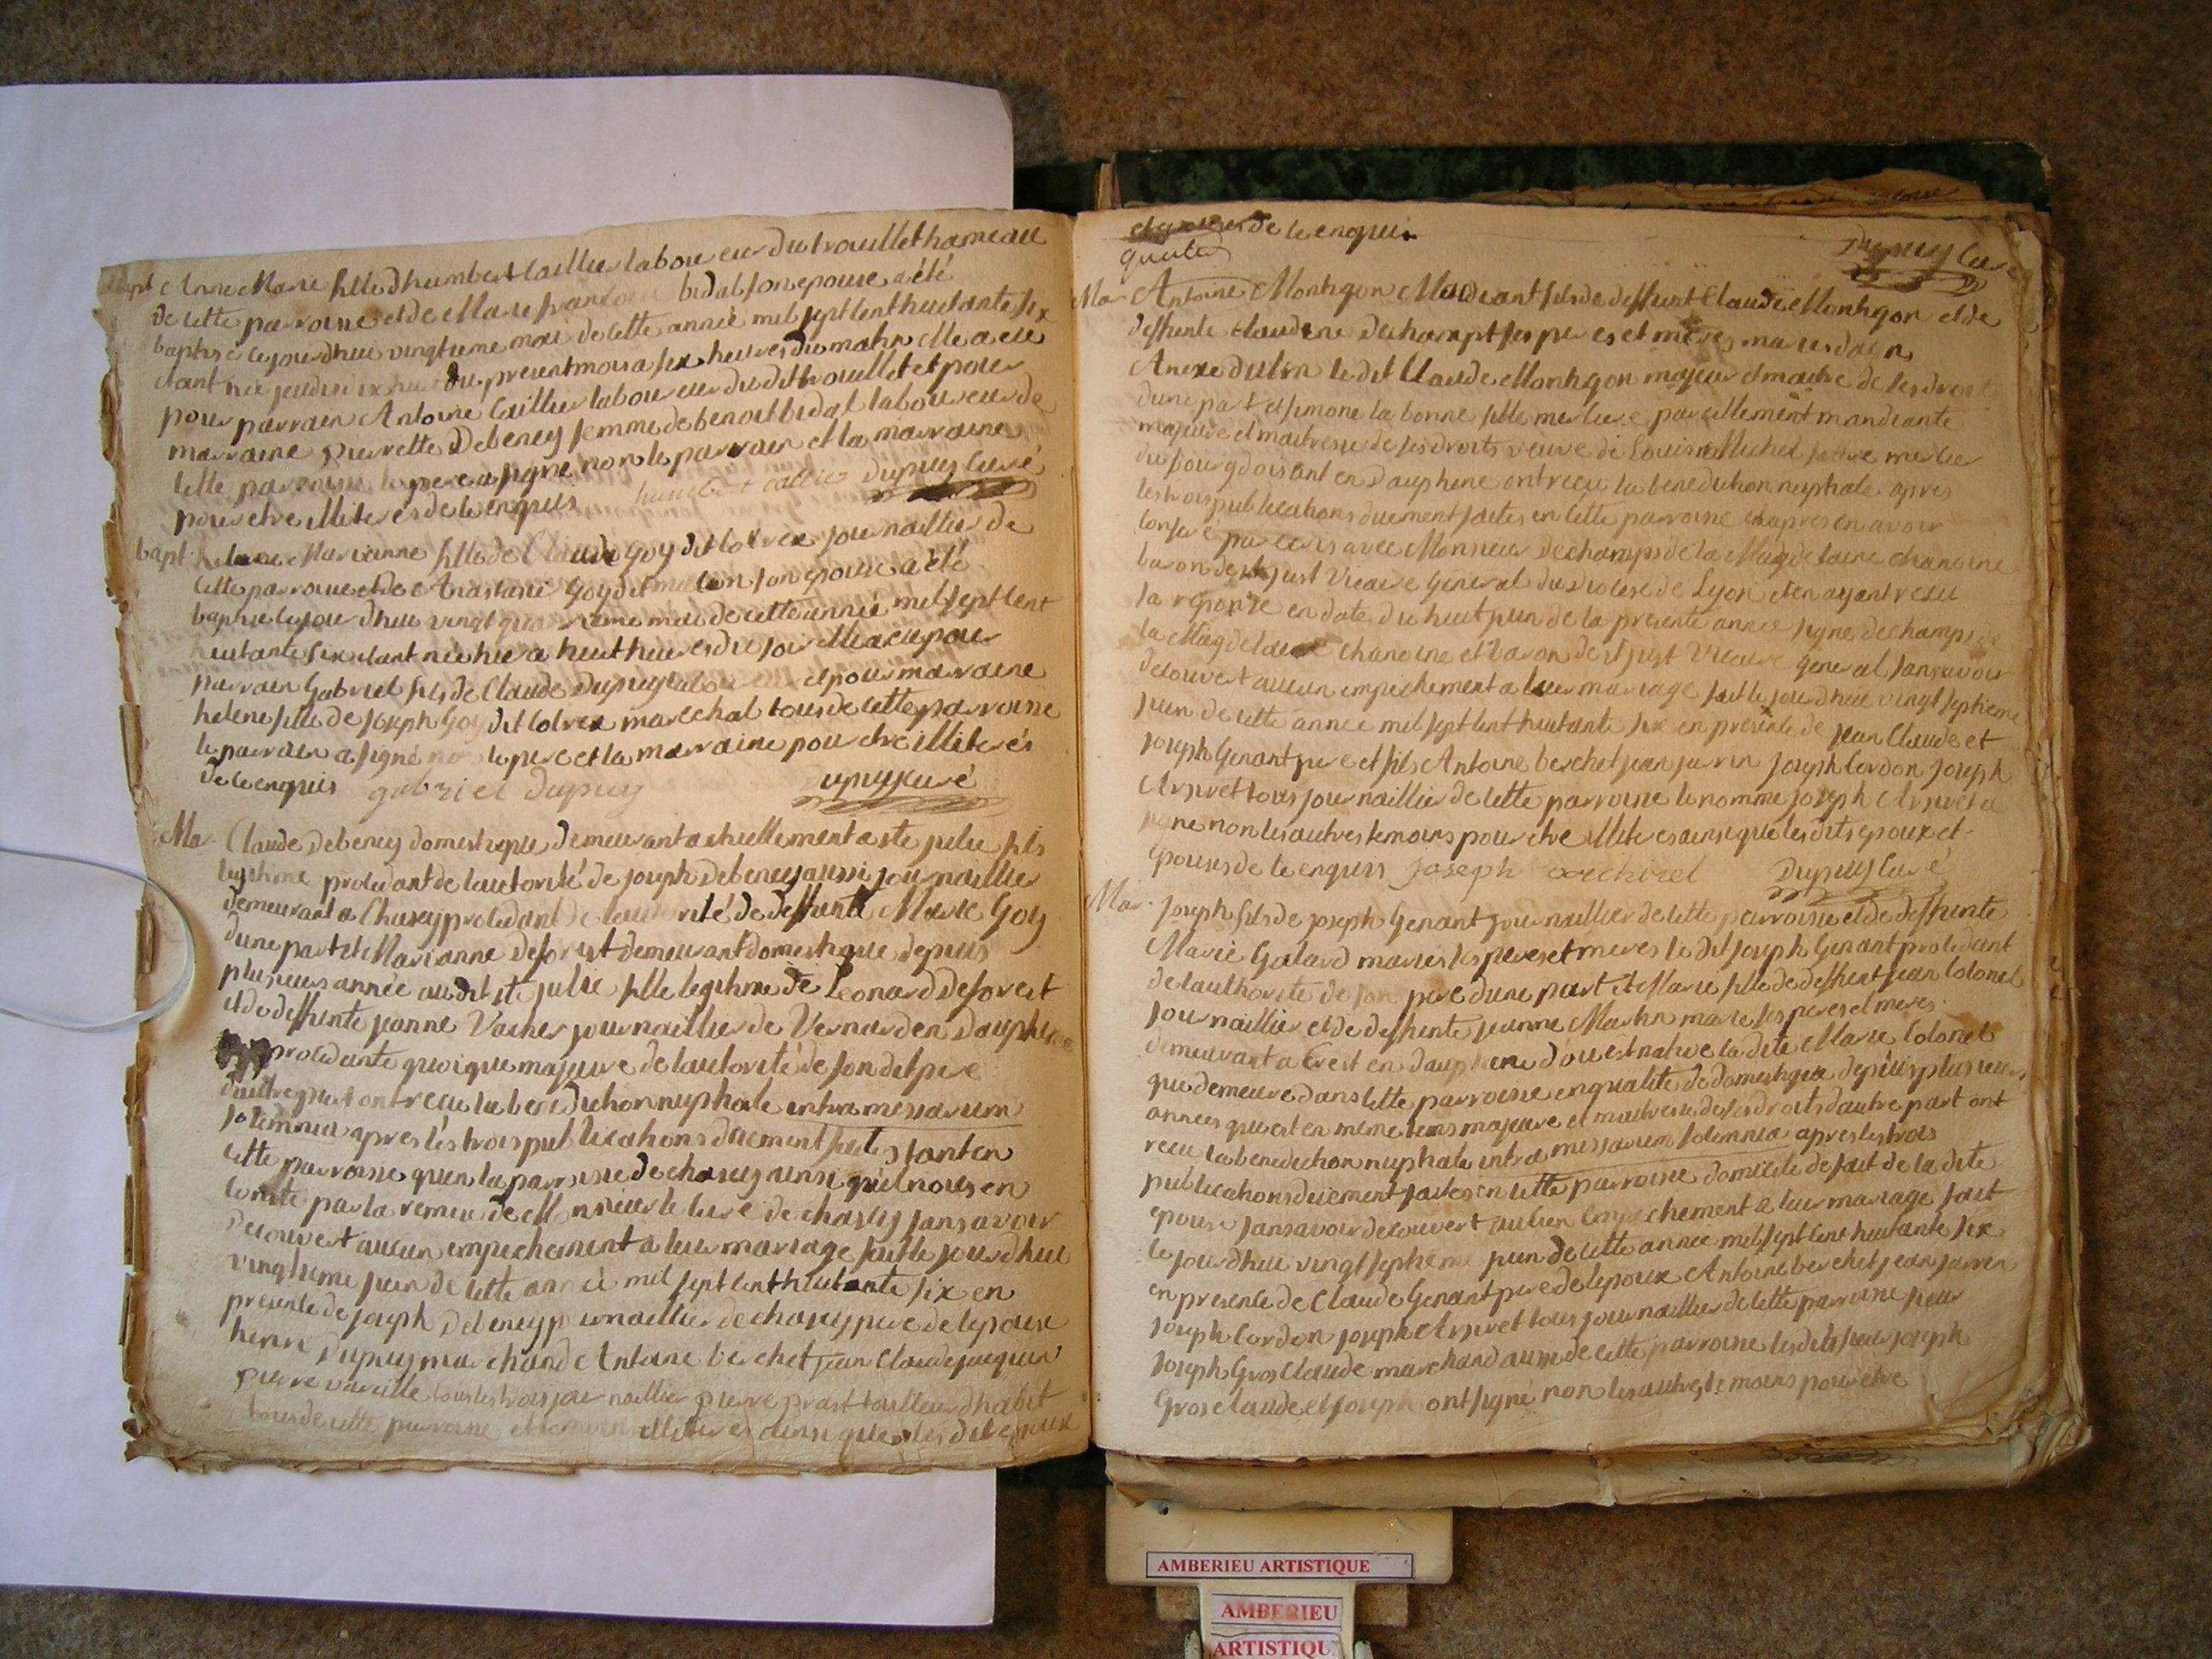 bapt Anne Marie fille dhumbert Caillier laboureur du trouillet hameau
de cette parroisse et de Marie francoise bidal son epouse a été
baptisé ce jourdhui vingtieme mai de cette année mil sept cent huitante six
etant née jeudi dix huit du present mois a six heures du matin elle a eu
pour parrain Antoine Caillier laboureur du dit trouillet et pour
marraine pierrette Debeney femme de benoit bidal laboureur de
cette parroisse le pere a signé non le parrain et la marraine
pour etre illiterés de ce enquis humbert callie Dupuy Curé
bapt helene Marianne fille de Claude Goy dit Colrex journaillier de
cette parroisse et de Anastasie Goy dit son epouse a été
baptisé ce jourdhui vingt quatrieme mai de cette année mil sept cent
huitante six etant née hier a huit heures du soir elle a eu pour
parrain Gabriel fils de Claude Dupuy laboureur et pour marraine
helene fille de joseph Goy dit Colrex marechal tous de cette parroisse
le parrain a signé non le pere et la marraine pour etre illiterés
de ce enquis gabriel dupuy Dupuy curé
Mar. Claude Debeney domestique demeurant actuellement a ste julie fils
legitime procedant de lautorité de joseph Debeney aussi journaillier
demeurant a Chasey procedant de lautorité de deffunte Marie Goy
dune part et Marianne Deforest demeurant domestique depuis
plusieurs année au dit ste julie fille legitime de Leonard Deforest
et de deffunte jeanne Vacher journaillier de Vernas en Dauphiné
procedante quoique majeure de lautorité de son dit pere
dautre part ont recu la benediction nuptiale intra missarum
solemnia apres les trois publications duement faites tant en
cette parroisse quen la parroisse de chasey ainsi quil nous en
conste par la remise de Monsieur le curé de chasey sans avoir
decouvert aucun empechement a leur mariage fait le jourdhui
vingtieme juin de cette année mil sept cent huitante six en
presence de joseph Debeney journaillier de chasey pere de lepoux
henri Dupuy marchand Antoine berchet jean Claude jacquier
pierre vareille tous les trois journaillier pierre prost tailleur dhabit
tous de cette parroisse et temoins illiterés ainsi que les dits epoux
et epouse de ce enquis
quate Dupuy Curé
Mar. Antoine Montigon Mandiant fils de deffunt Claude Montigon et de
deffunte Claudine Dechampt ses peres et meres mariés dain
Anexe dulin le dit Claude Montigon majeur et maitre de ses droits
dune part et simone la bonne fille merciere pareillement mandiante
majeure et maitresse de ses droits veuve de Louis Michel mercier
du bourg doisant en Dauphiné ont recu la benediction nuptiale apres
les trois publications duement faites en cette parroisse et apres en avoir
conferé par ecrit avec Monsieur Dechamps de la Magdelaine chanoine
baron de st just Vicaire General du diocese de Lyon et en ayant recu
sa réponse en date du huit juin de la presente année signé dechamps de
la Magdelaine chanoine et baron de st just Vicaire General sans avoir
decouvert aucun empechement a leur mariage fait le jourdhui vingt septieme
juin de cette année mil sept cent huitante six en presence de jean Claude et
joseph Genant pere et fils Antoine berchet jean jarrin joseph Cordon joseph
Arsivet tous journaillier de cette parroisse le nommé joseph Arsivet a
signé non les autres temoins pour etre illiterés ainsi que les dits epoux et
epouses de ce enquis joseph Dupuy Curé
Mar. joseph fils de joseph Genant journaillier de cette parroisse et de deffunte
Marie Galard mariés ses peres et meres le dit joseph Genant procedant
de lauthorité de son pere dune part et Marie fille de deffunt jean Colonel
journaillier et de deffunte jeanne Martin mariés ses peres et meres
demeurant a Crest en dauphiné dou est native la dite Marie Colonel
qui demeure dans cette parroisse en qualité de domestique depuis plusieurs
années qui est en meme tems majeure et maitresse de ses droits dautre part ont
recu la benediction nuptiale intra missarum solemnia apres les trois
publications duement faites en cette parroisse domicile de fait de la dite
epouse sans avoir decouvert aucun empechement a leur mariage fait
le jourdhui vingt septieme juin de cette année mil sept cent huitante six
en presence de Claude Genant pere de lepoux Antoine berchet jean jarrin
joseph Cordon joseph Arsivet tous journaillier de cette parroisse
joseph Gros Claude marchand aussi de cette parroisse les dits joseph
Gros claude et joseph ont signé non les autres temoins pour etre
AMBERIEU ARTISTIQUE
AMBERIEU
ARTISTIQU